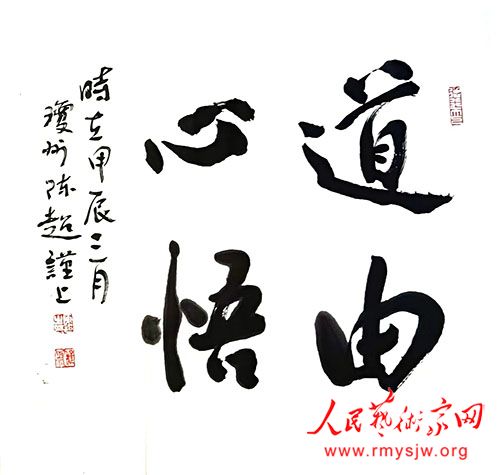 道由
心悟
時在甲辰三月
瓊州陈超謹上
人民藝術家网
www.rmysjw.org